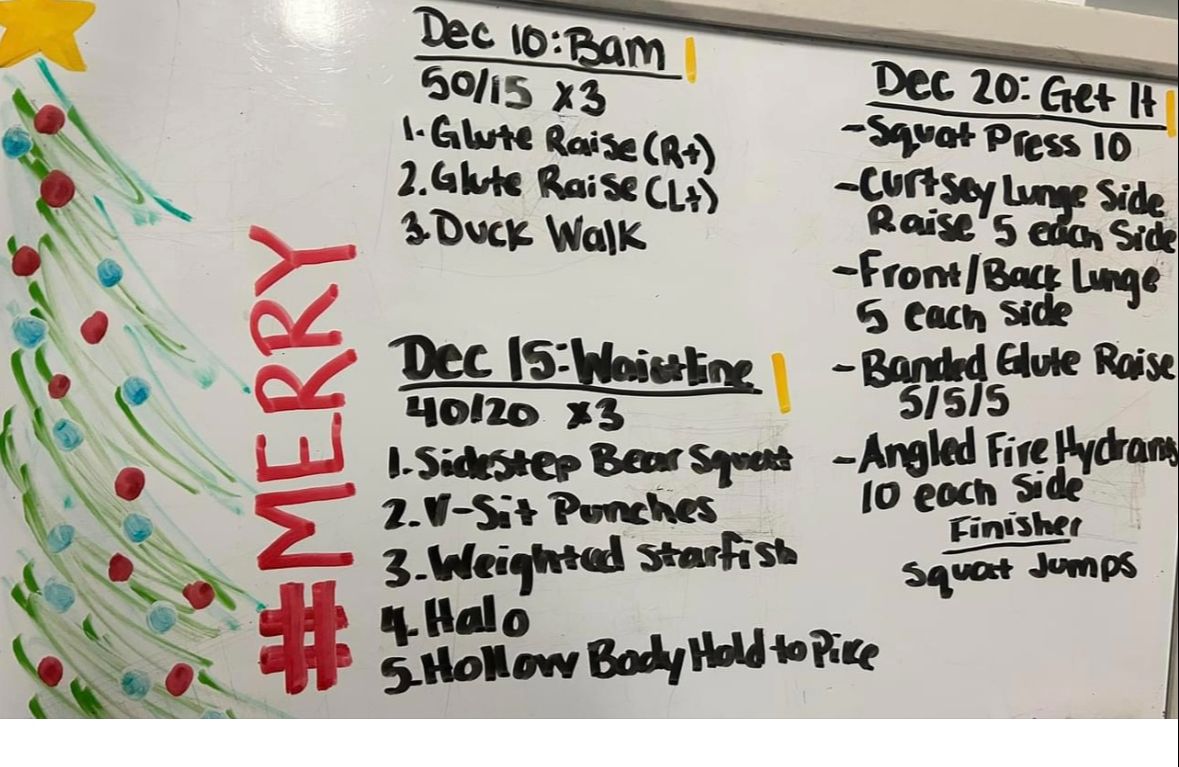 #MERRY
Dec 10: Bam
50/15 x3
1. Glute Raise (Rt)
2. Glute Raise (Lt)
3. Duck Walk
Dec 15: Waistline
40/20 x3
1. Sidestep Bear Squat
2. V-Sit Punches
3. Weighted Starfish
4. Halo
5. Hollow Body Hold to Pike
Dec 20: Get It
-Squat Press 10
-Curtsey Lunge Side
Raise 5 each Side
-Front/Back Lunge
5 each Side
-Banded Glute Raise
5/5/5
-Angled Fire Hydrants
10 each Side
Finisher
Squat Jumps